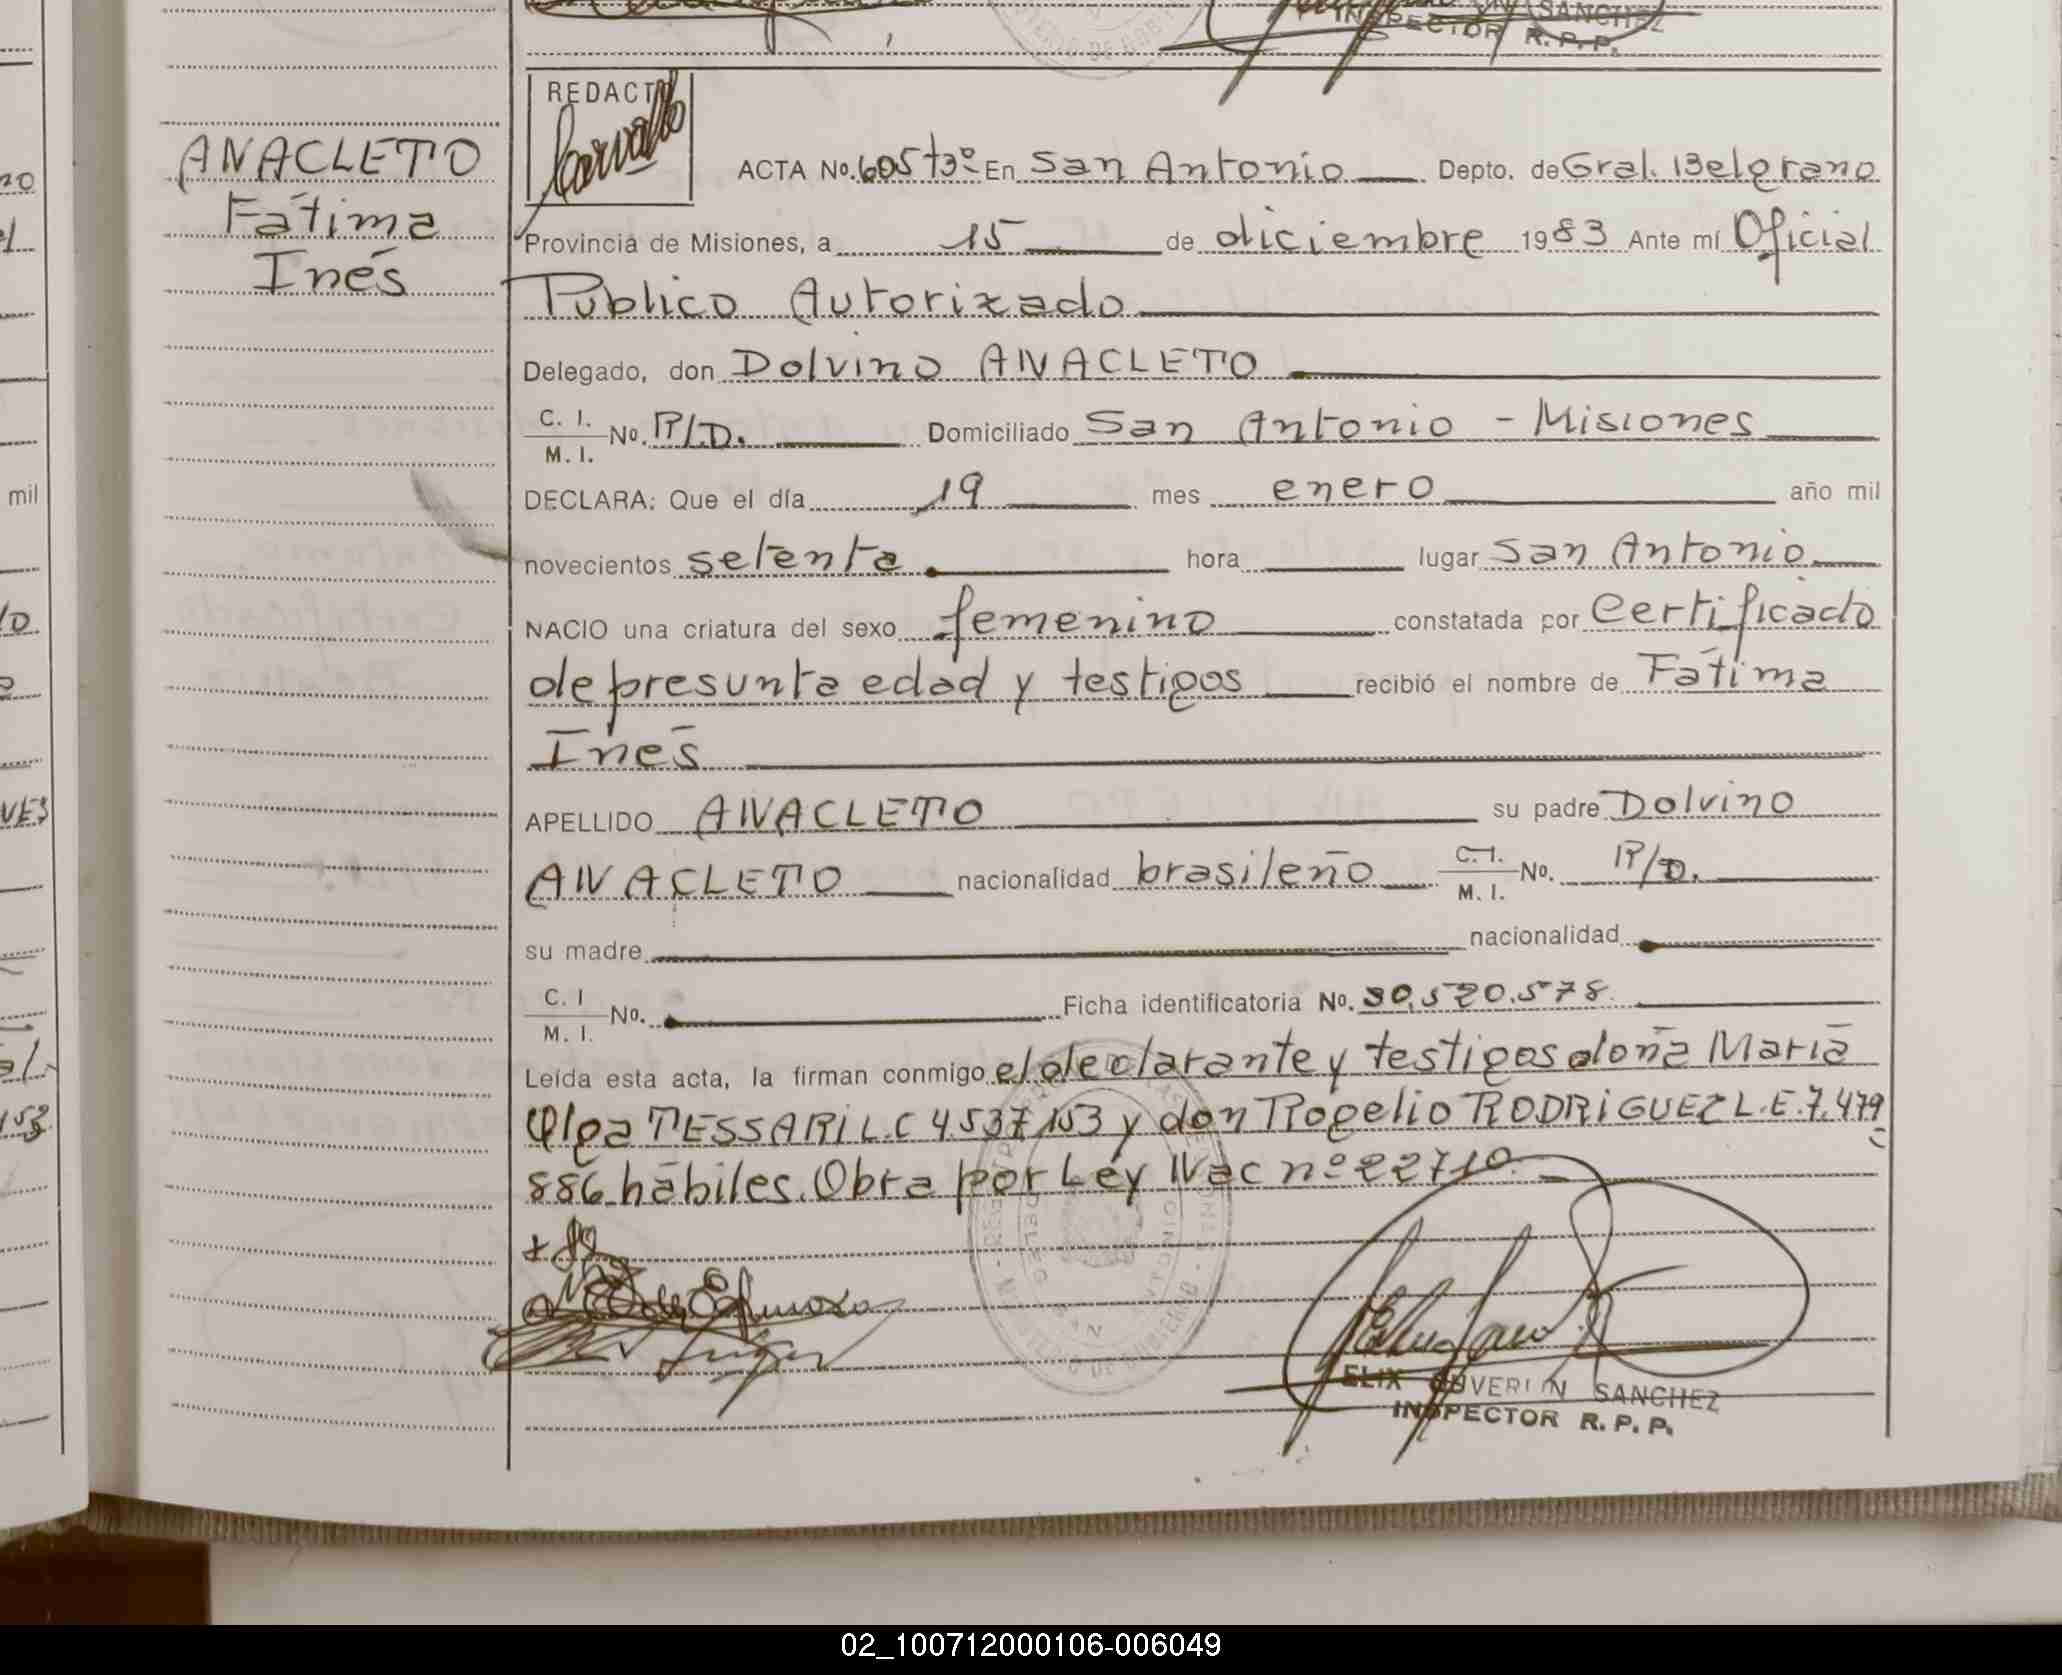 SANCHEZ
INSPECTOR R. P. P.
REDACTO
Carvallo
ANACLETO
Fátima
Inés
ACTA No. 605 t3º En San Antonio Depto. de Gral. Belgrano
Provincia de Misiones, a 15 de diciembre 1983 Ante mí Oficial
Público Autorizado
Delegado, don Dolvino ANACLETO
C. I.
M. I. No. R/D. Domiciliado San Antonio - Misiones
DECLARA: Que el día 19 mes enero año mil
novecientos setenta hora lugar San Antonio
NACIO una criatura del sexo femenino constatada por Certificado
de presunta edad y testigos recibió el nombre de Fátima
Inés
APELLIDO ANACLETO su padre Dolvino
ANACLETO nacionalidad brasileño C. I.
M. I. No. R/D.
su madre nacionalidad
C. I
M. I. No. Ficha identificatoria No. 30.520.578
Leída esta acta, la firman conmigo el declarante y testigos doña María
Olga TESSARI L.C 4.537.153 y don Rogelio RODRIGUEZ L.E. 7.479
886 hábiles. Obra por Ley Nac nº 22710.
ELIX SUVERLIN SANCHEZ
INSPECTOR R. P. P.
mil
VES
153
02_100712000106-006049